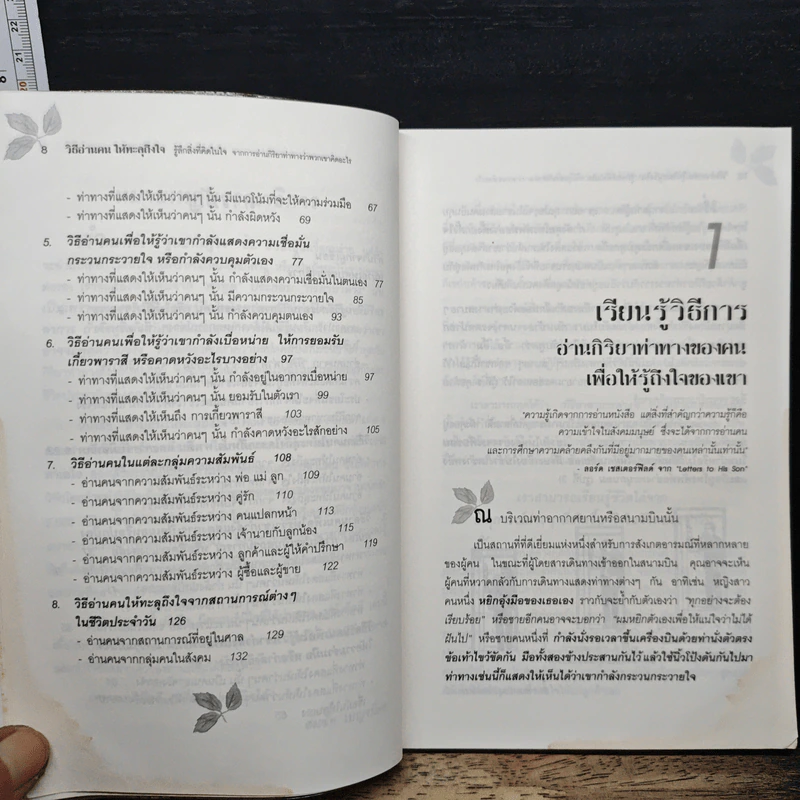 8 วิถีอ่านคน ให้ทะลุถึงใจ รู้ลึกสิ่งที่คิดในใจ จากการอ่านกิริยาท่าทางว่าพวกเขาคิดอะไร
- ท่าทางที่แสดงให้เห็นว่าคนๆ นั้น มีแนวโน้มที่จะให้ความร่วมมือ 67
- ท่าทางที่แสดงให้เห็นว่าคนๆ นั้น กำลังผิดหวัง 69
5. วิธีอ่านคนเพื่อให้รู้ว่าเขากำลังแสดงความเชื่อมั่น
กระวนกระวายใจ หรือกำลังควบคุมตัวเอง 77
- ท่าทางที่แสดงให้เห็นว่าคนๆ นั้น กำลังแสดงความเชื่อมั่นในตนเอง 77
- ท่าทางที่แสดงให้เห็นว่าคนๆ นั้น มีความกระวนกระวายใจ 85
- ท่าทางที่แสดงให้เห็นว่าคนๆ นั้น กำลังควบคุมตนเอง 93
6. วิธีอ่านคนเพื่อให้รู้ว่าเขากำลังเบื่อหน่าย ให้การยอมรับ
เกี้ยวพาราสี หรือคาดหวังอะไรบางอย่าง 97
- ท่าทางที่แสดงให้เห็นว่าคนๆ นั้น กำลังอยู่ในอาการเบื่อหน่าย 97
- ท่าทางที่แสดงให้เห็นว่าคนๆ นั้น ยอมรับในตัวเรา 99
- ท่าทางที่แสดงให้เห็นถึง การเกี้ยวพาราสี 103
- ท่าทางที่แสดงให้เห็นว่าคนๆ นั้น กำลังคาดหวังอะไรสักอย่าง 105
7. วิธีอ่านคนในแต่ละกลุ่มความสัมพันธ์ 108
- อ่านคนจากความสัมพันธ์ระหว่าง พ่อ แม่ ลูก 109
- อ่านคนจากความสัมพันธ์ระหว่าง คู่รัก 110
- อ่านคนจากความสัมพันธ์ระหว่าง คนแปลกหน้า 113
- อ่านคนจากความสัมพันธ์ระหว่าง เจ้านายกับลูกน้อง 115
- อ่านคนจากความสัมพันธ์ระหว่าง ลูกค้าและผู้ให้คำปรึกษา 119
- อ่านคนจากความสัมพันธ์ระหว่าง ผู้ซื้อและผู้ขาย 122
8. วิธีอ่านคนให้ทะลุถึงใจจากสถานการณ์ต่างๆ
ในชีวิตประจำวัน 126
- อ่านคนจากสถานการณ์ที่อยู่ในศาล 129
- อ่านคนจากกลุ่มคนในสังคม 132
1
เรียนรู้วิธีการ
อ่านกิริยาท่าทางของคน
เพื่อให้รู้ถึงใจของเขา
"ความรู้เกิดจากการอ่านหนังสือ แต่สิ่งที่สำคัญกว่าความรู้ก็คือ
ความเข้าใจในสังคมมนุษย์ ซึ่งจะได้จากการอ่านคน
และการศึกษาความคล้ายคลึงกันที่มีอยู่มากมายของคนเหล่านั้นเท่านั้น"
- ลอร์ด เชสเตอร์ฟิลด์ จาก "Letters to His Son"
ณ บริเวณท่าอากาศยานหรือสนามบินนั้น
เป็นสถานที่ที่ดีเยี่ยมแห่งหนึ่งสำหรับการสังเกตอารมณ์ที่หลากหลาย
ของผู้คน ในขณะที่ผู้โดยสารเดินทางเข้าออกในสนามบิน คุณอาจจะเห็น
ผู้คนที่หวาดกลัวกับการเดินทางแสดงท่าทางต่างๆ กัน อาทิเช่น หญิงสาว
คนหนึ่ง หยิกอุ้งมือของเธอเอง ราวกับจะย้ำกับตัวเองว่า "ทุกอย่างจะต้อง
เรียบร้อย" หรือชายอีกคนอาจจะบอกว่า "ผมหยิกตัวเองเพื่อให้แน่ใจว่าไม่ได้
ฝันไป" หรือชายคนหนึ่งที่ กำลังนั่งรอเวลาขึ้นเครื่องบินด้วยท่านั่งตัวตรง
ข้อเท้าไขว้ขัดกัน มือทั้งสองข้างประสานกันไว้ แล้วใช้นิ้วโป้งดันกันไปมา
ท่าทางเช่นนี้ก็แสดงให้เห็นได้ว่าเขากำลังกระวนกระวายใจ